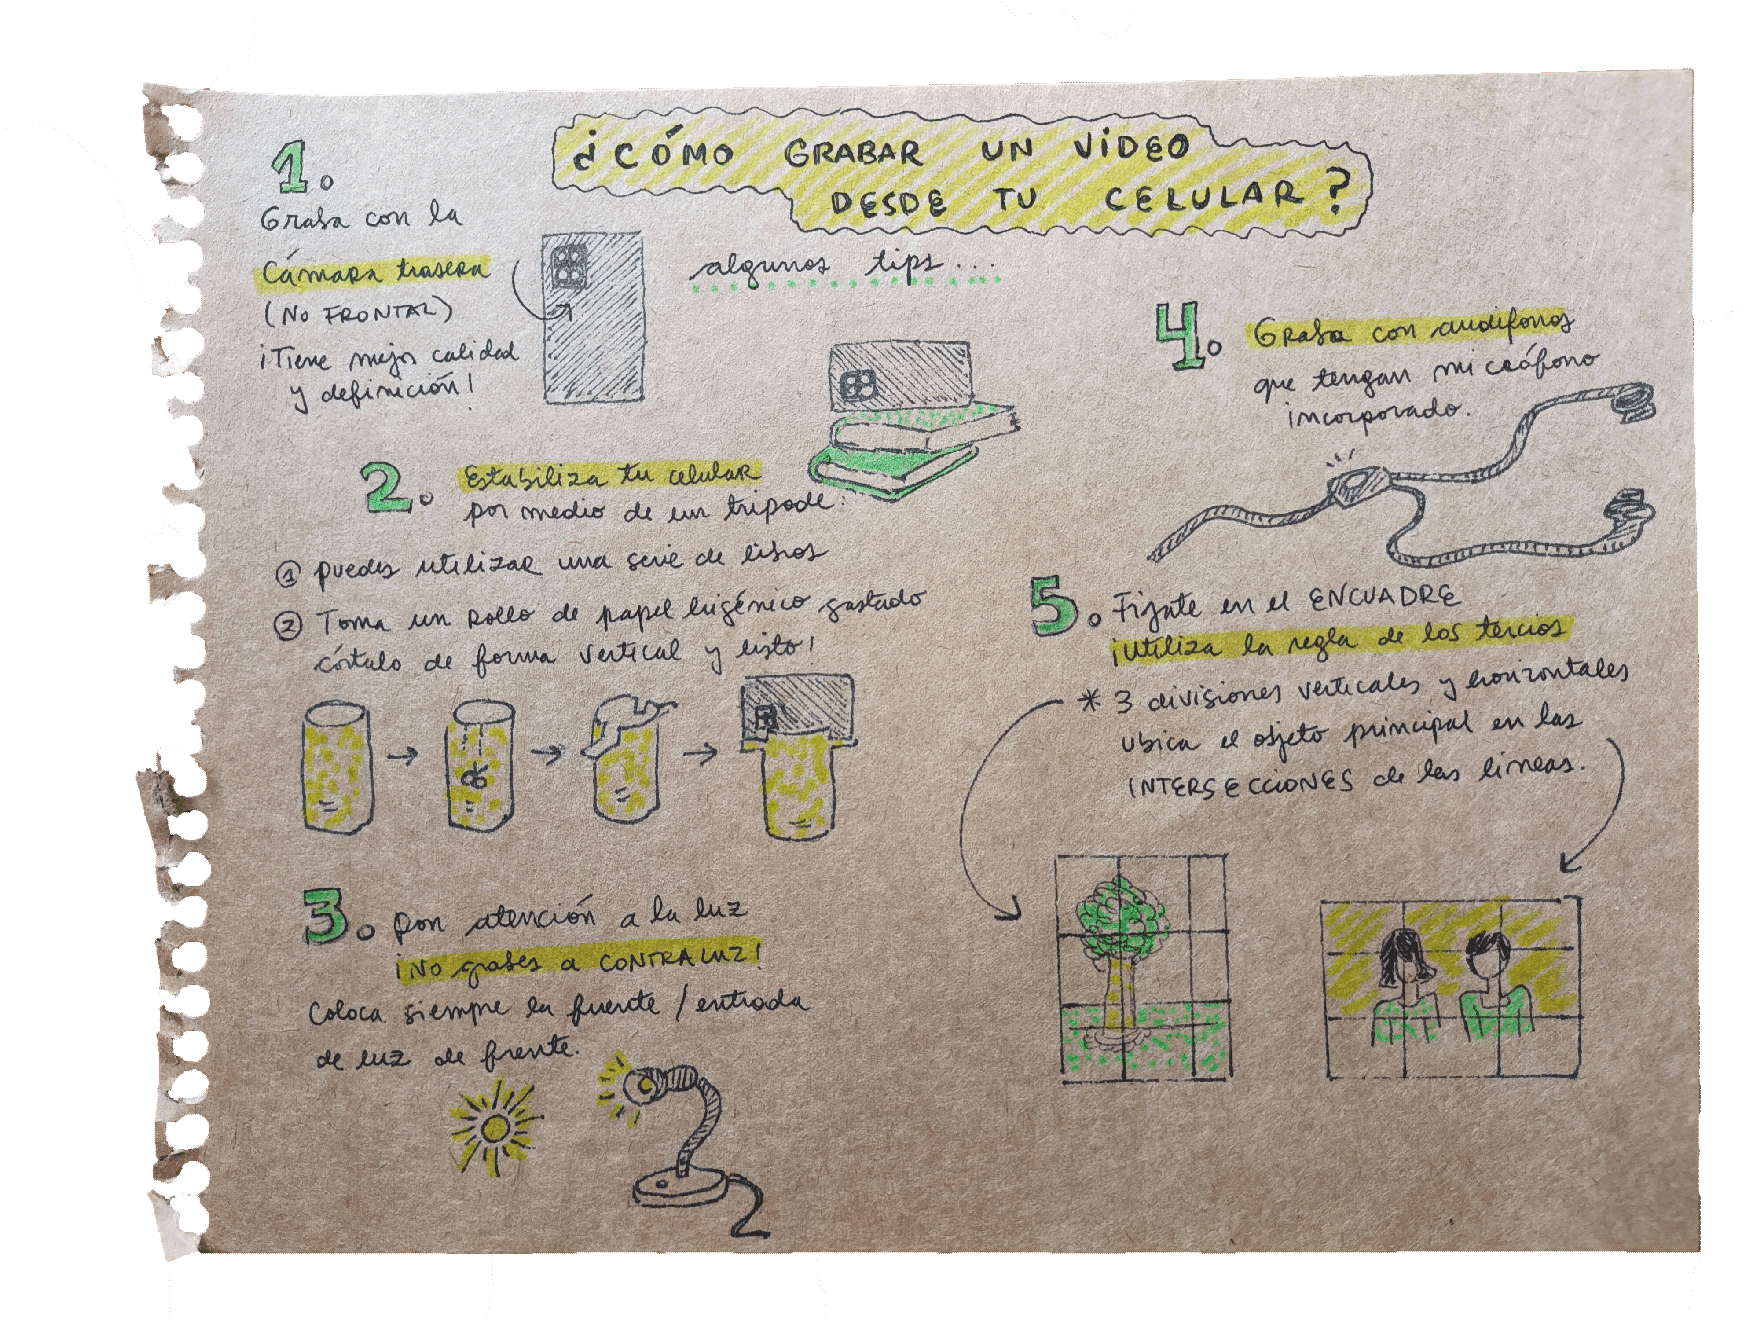 ¿CÓMO GRABAR UN VIDEO
DESDE TU CELULAR?
algunos tips...
1.
Graba con la
cámara trasera
(NO FRONTAL)
¡Tiene mejor calidad
y definición!
2.
Estabiliza tu celular
por medio de un tripode:
① puedes utilizar una serie de libros
② Toma un rollo de papel higénico gastado
córtalo de forma vertical y listo!
3.
Pon atención a la luz
¡NO grabes a CONTRALUZ!
Coloca siempre la fuente / entrada
de luz de frente.
4.
Graba con audifonos
que tengan micrófono
incorporado.
5.
Fijate en el ENCUADRE
¡Utiliza la regla de los tercios
* 3 divisiones verticales y horizontales
Ubica el objeto principal en las
INTERSECCIONES de las lineas.